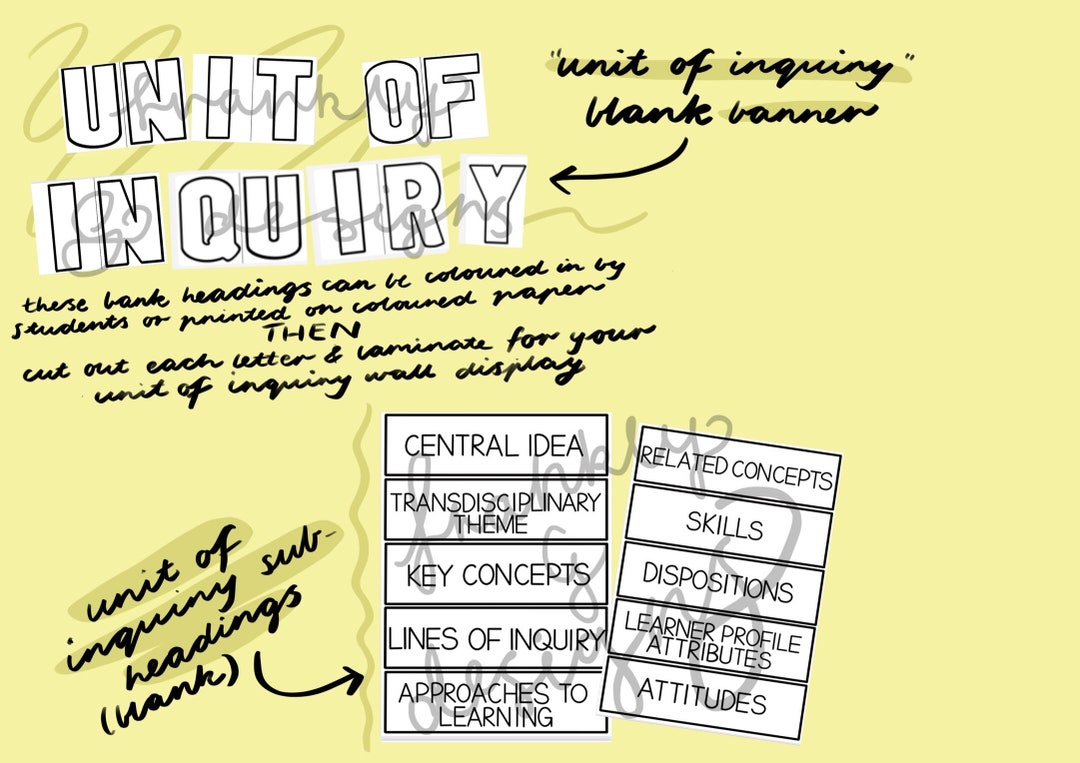 UNIT OF
INQUIRY
"unit of inquiry"
blank banner
these bank headings can be coloured in by
students or printed on coloured paper
THEN
cut out each letter & laminate for your
unit of inquiry wall display
unit of
inquiry sub-
headings
(blank)
CENTRAL IDEA
TRANSDISCIPLINARY
THEME
KEY CONCEPTS
LINES OF INQUIRY
APPROACHES TO
LEARNING
RELATED CONCEPTS
SKILLS
DISPOSITIONS
LEARNER PROFILE
ATTRIBUTES
ATTITUDES
frankly
designs
frankly
designs